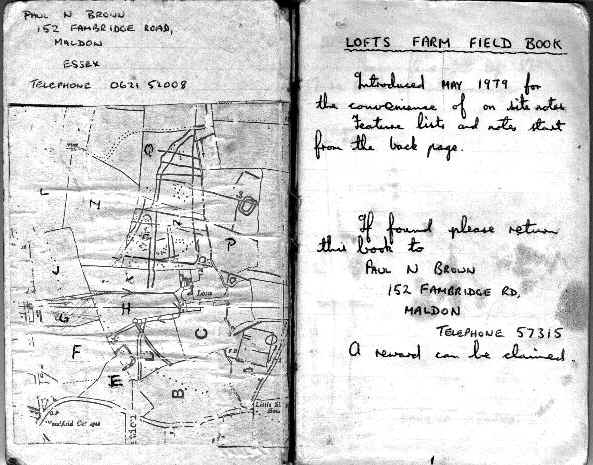 PAUL N BROWN
152 FAMBRIDGE ROAD,
MALDON
ESSEX
TELEPHONE 0621 52008
L
Z
Q
P
J
K
H
G
F
E
C
B
LOFTS FARM FIELD BOOK
Introduced MAY 1979 for
the convenience of on site notes
Feature lists and notes start
from the back page.
If found please return
this book to
PAUL N BROWN
152 FAMBRIDGE RD,
MALDON
TELEPHONE 57315
A reward can be claimed.